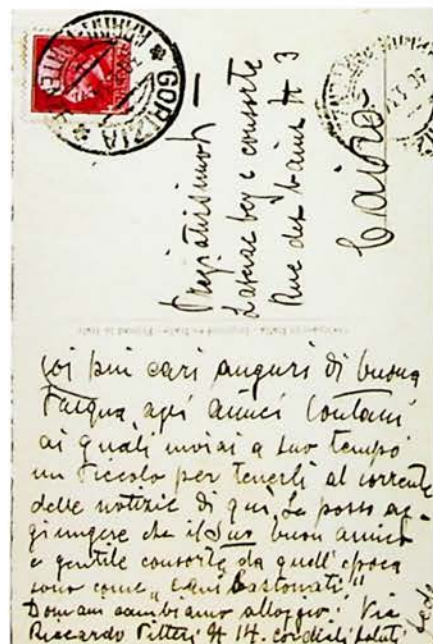 GORIZIA
Pregiatissimo
Lasciac bey e consorte
Rue des bains № 3
Cairo
Stampato in Italia - Imprimé en Italie - Printed in Italy
coi più cari auguri di buona
Pasqua agli amici lontani
ai quali inviai a suo tempo
un Piccolo per tenerli al corrente
delle notizie di qui. Le posso ag-
giungere che il Suo buon amico
e gentile consorte da quell'epoca
sono come „cani bastonati"
Domani cambiamo alloggio: Via
Riccardo Pitteri № 14. cordiali saluti